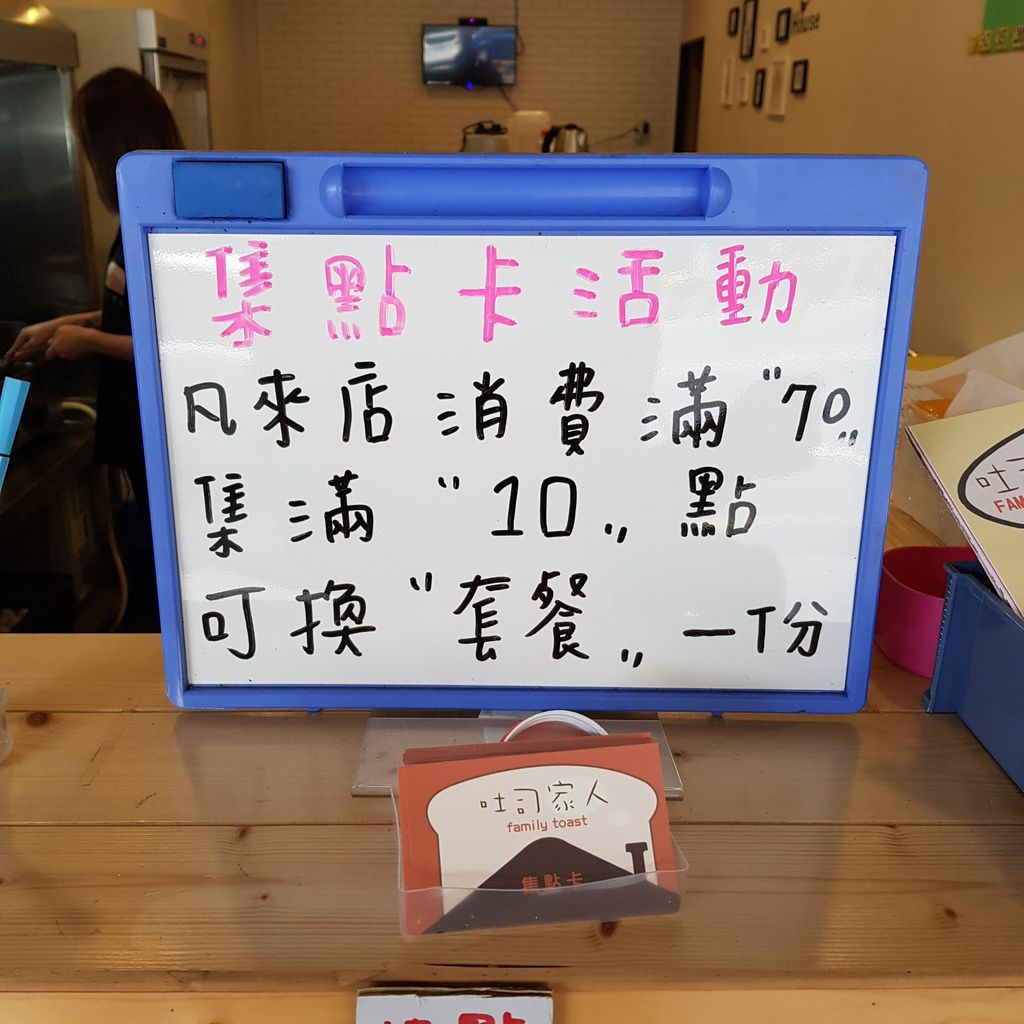 集點卡活動
凡來店消費滿"70„
集滿"10„點
可換"套餐„一份
吐司家人
family toast
集點卡